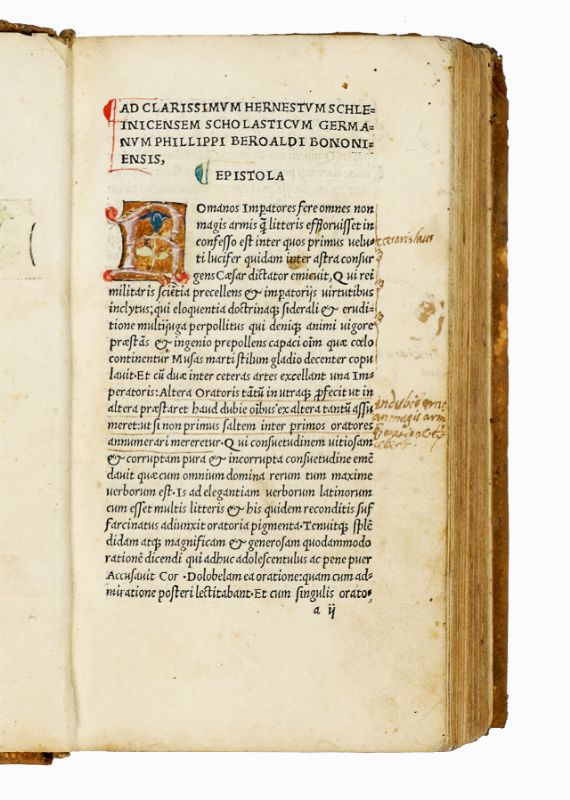 AD CLARISSIMVM HERNESTVM SCHLE-
INICENSEM SCHOLASTICVM GERMA-
NVM PHILLIPPI BEROALDI BONONI-
ENSIS,
EPISTOLA
ROmanos Impatores fere omnes non
magis armis q̃ litteris effloruisse in
confesso est inter quos primus velu-
ti lucifer quidam inter astra consur
gens Cæsar dictator emicuit, Qui rei
militaris sciẽtia precellens & imperatorijs virtutibus
inclytus; qui eloquentia doctrinaq; siderali & erudi-
tione multijuga perpollitus qui deniq; animi vigore
præstãs & ingenio prepollens capaci oĩm quæ cœlo
continentur Musas marti stilum gladio decenter copu
lauit·Et cũ duæ inter ceteras artes excellant una Im-
peratoris: Altera Oratoris tãtũ in utraq; ꝓfecit ut in
altera præstaret haud dubie oĩbus ex altera tantũ assu
meret: ut si non primus saltem inter primos oratores
annumerari mereretur· Qui consuetudinem vitiosam
& corruptam pura & incorrupta consuetudine emẽ
dauit quæ cum omnium domina rerum tum maxime
verborum est·Is ad elegantiam verborum latinorum
cum esset multis litteris & his quidem reconditis suf
farcinatus adiunxit oratoria pigmenta·Tenuitq; splẽ
didam atq; magnificam & generosam quodammodo
rationẽ dicendi qui adhuc adolescentulus ac pene puer
Accusavit Cor ·Dolobelam ea oratione: quam cum ad-
miratione posteri lectitabant·Et cum singulis orato-
a ij
cesaris laus